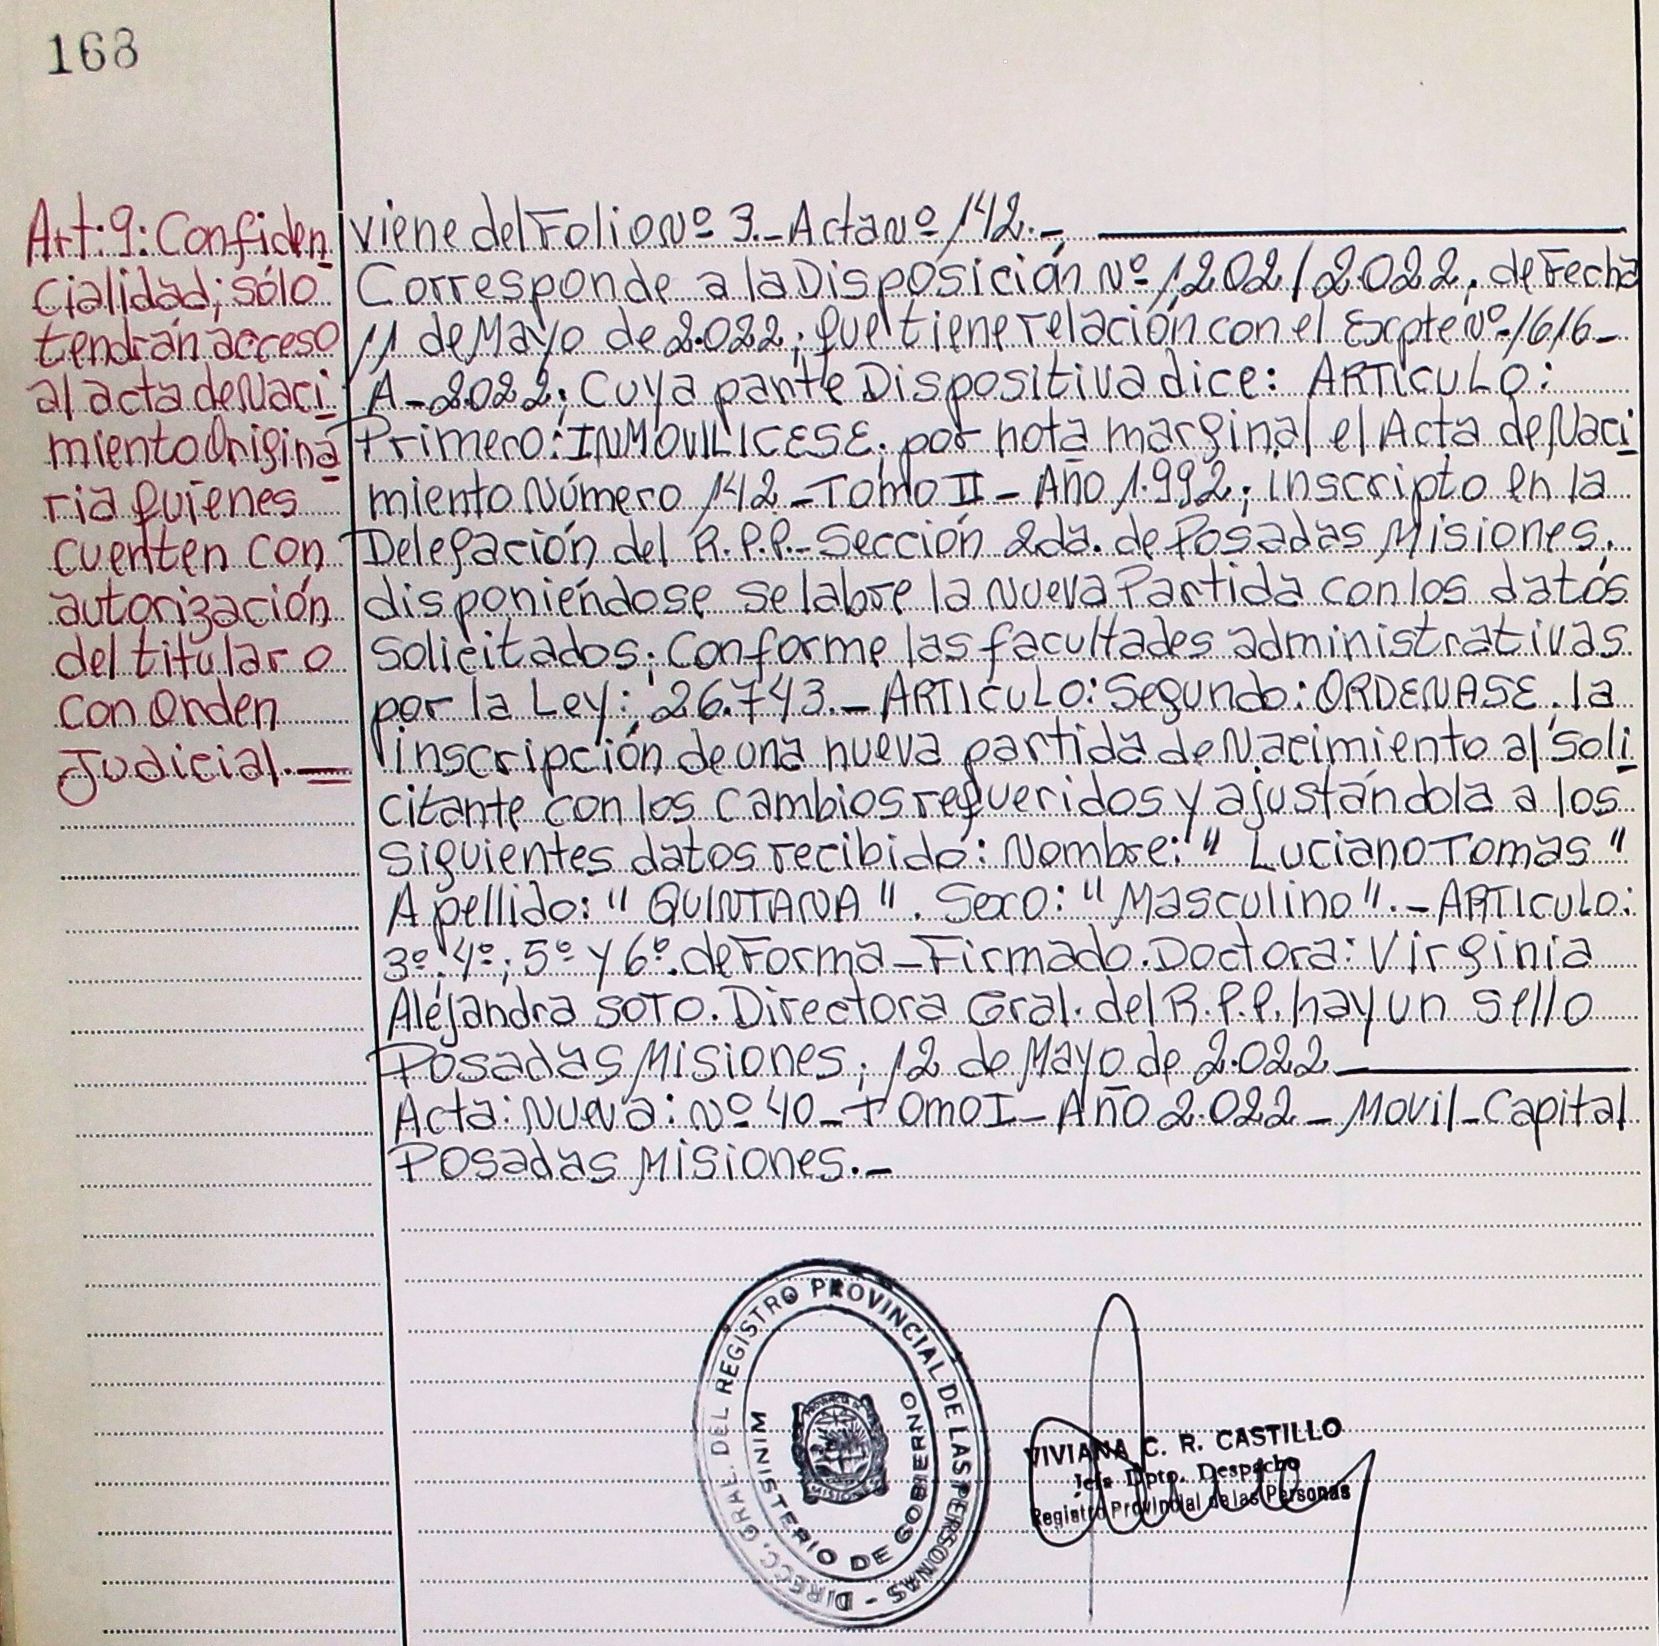 168
Art: 9: Confiden
cialidad; sólo
tendrán acceso
al acta de Naci
miento Origina
ria quienes
cuenten con
autorización
del titular o
con Orden
Judicial.
viene del Folio Nº 3.- Acta Nº 142.-
Corresponde a la Disposición Nº 1.202/2.022, de Fecha
11 de Mayo de 2.022; que tiene relación con el Expte Nº 1616-
A-2.022; Cuya parte Dispositiva dice: ARTICULO:
Primero: INMOVILICESE, por nota marginal el Acta de Naci
miento Número 142 - Tomo II - Año 1.992; inscripto en la
Delegación del R.P.P.- Sección 2da. de Posadas Misiones,
disponiéndose se labre la Nueva Partida con los datos
solicitados; Conforme las facultades administrativas
por la Ley: 26.743.- ARTICULO: Segundo: ORDENASE, la
inscripción de una nueva partida de Nacimiento al Soli
citante con los cambios requeridos y ajustándola a los
siguientes datos recibido: Nombre: " Luciano Tomas "
Apellido: " QUINTANA ". Sexo: " Masculino ".- ARTICULO:
3º; 4º; 5º y 6º. de Forma - Firmado. Doctora: Virginia
Alejandra SOTO. Directora Gral. del R.P.P. hay un sello
Posadas Misiones, 12 de Mayo de 2.022
Acta: Nueva: Nº 40 - Tomo I - Año 2.022 - Movil - Capital
Posadas Misiones.-
DIRECC. GRAL. DEL REGISTRO PROVINCIAL DE LAS PERSONAS -
MINISTERIO DE GOBIERNO
MISIONES
VIVIANA C. R. CASTILLO
Jefa Dpto. Despacho
Registro Provincial de las Personas